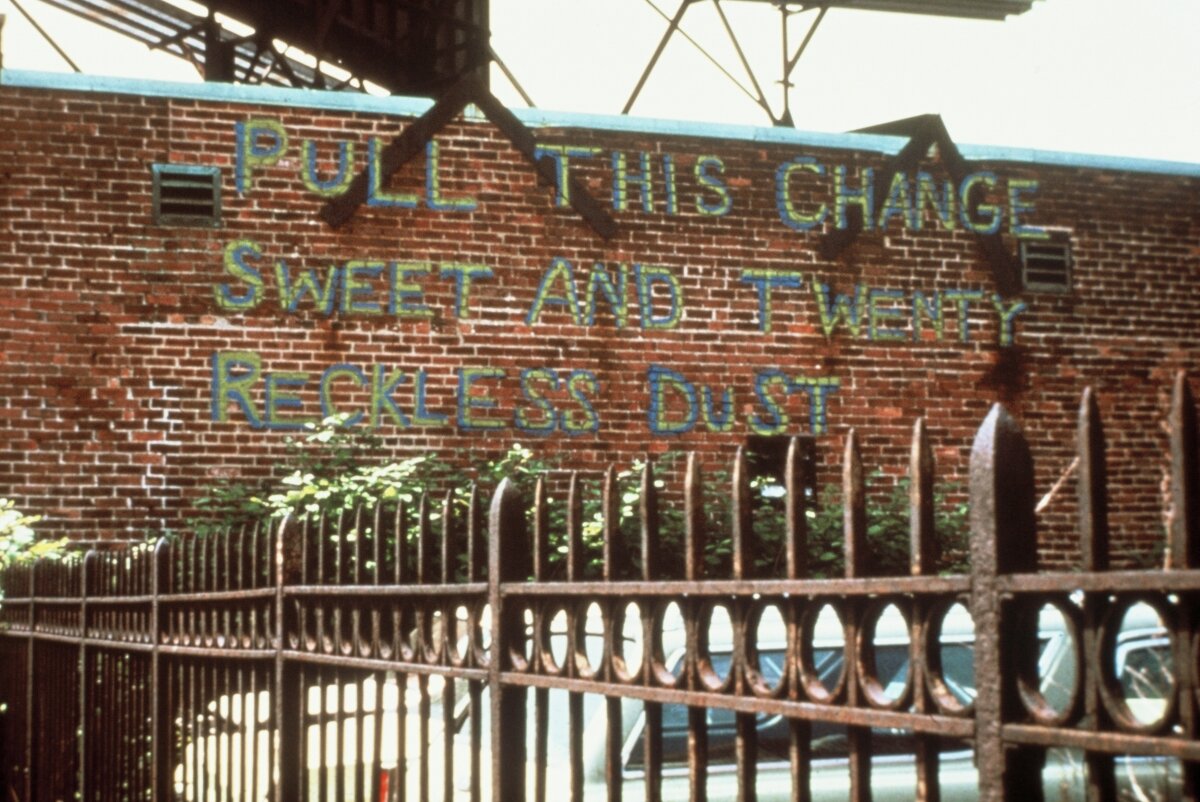 PULL THIS CHANGE
SWEET AND TWENTY
RECKLESS DUST